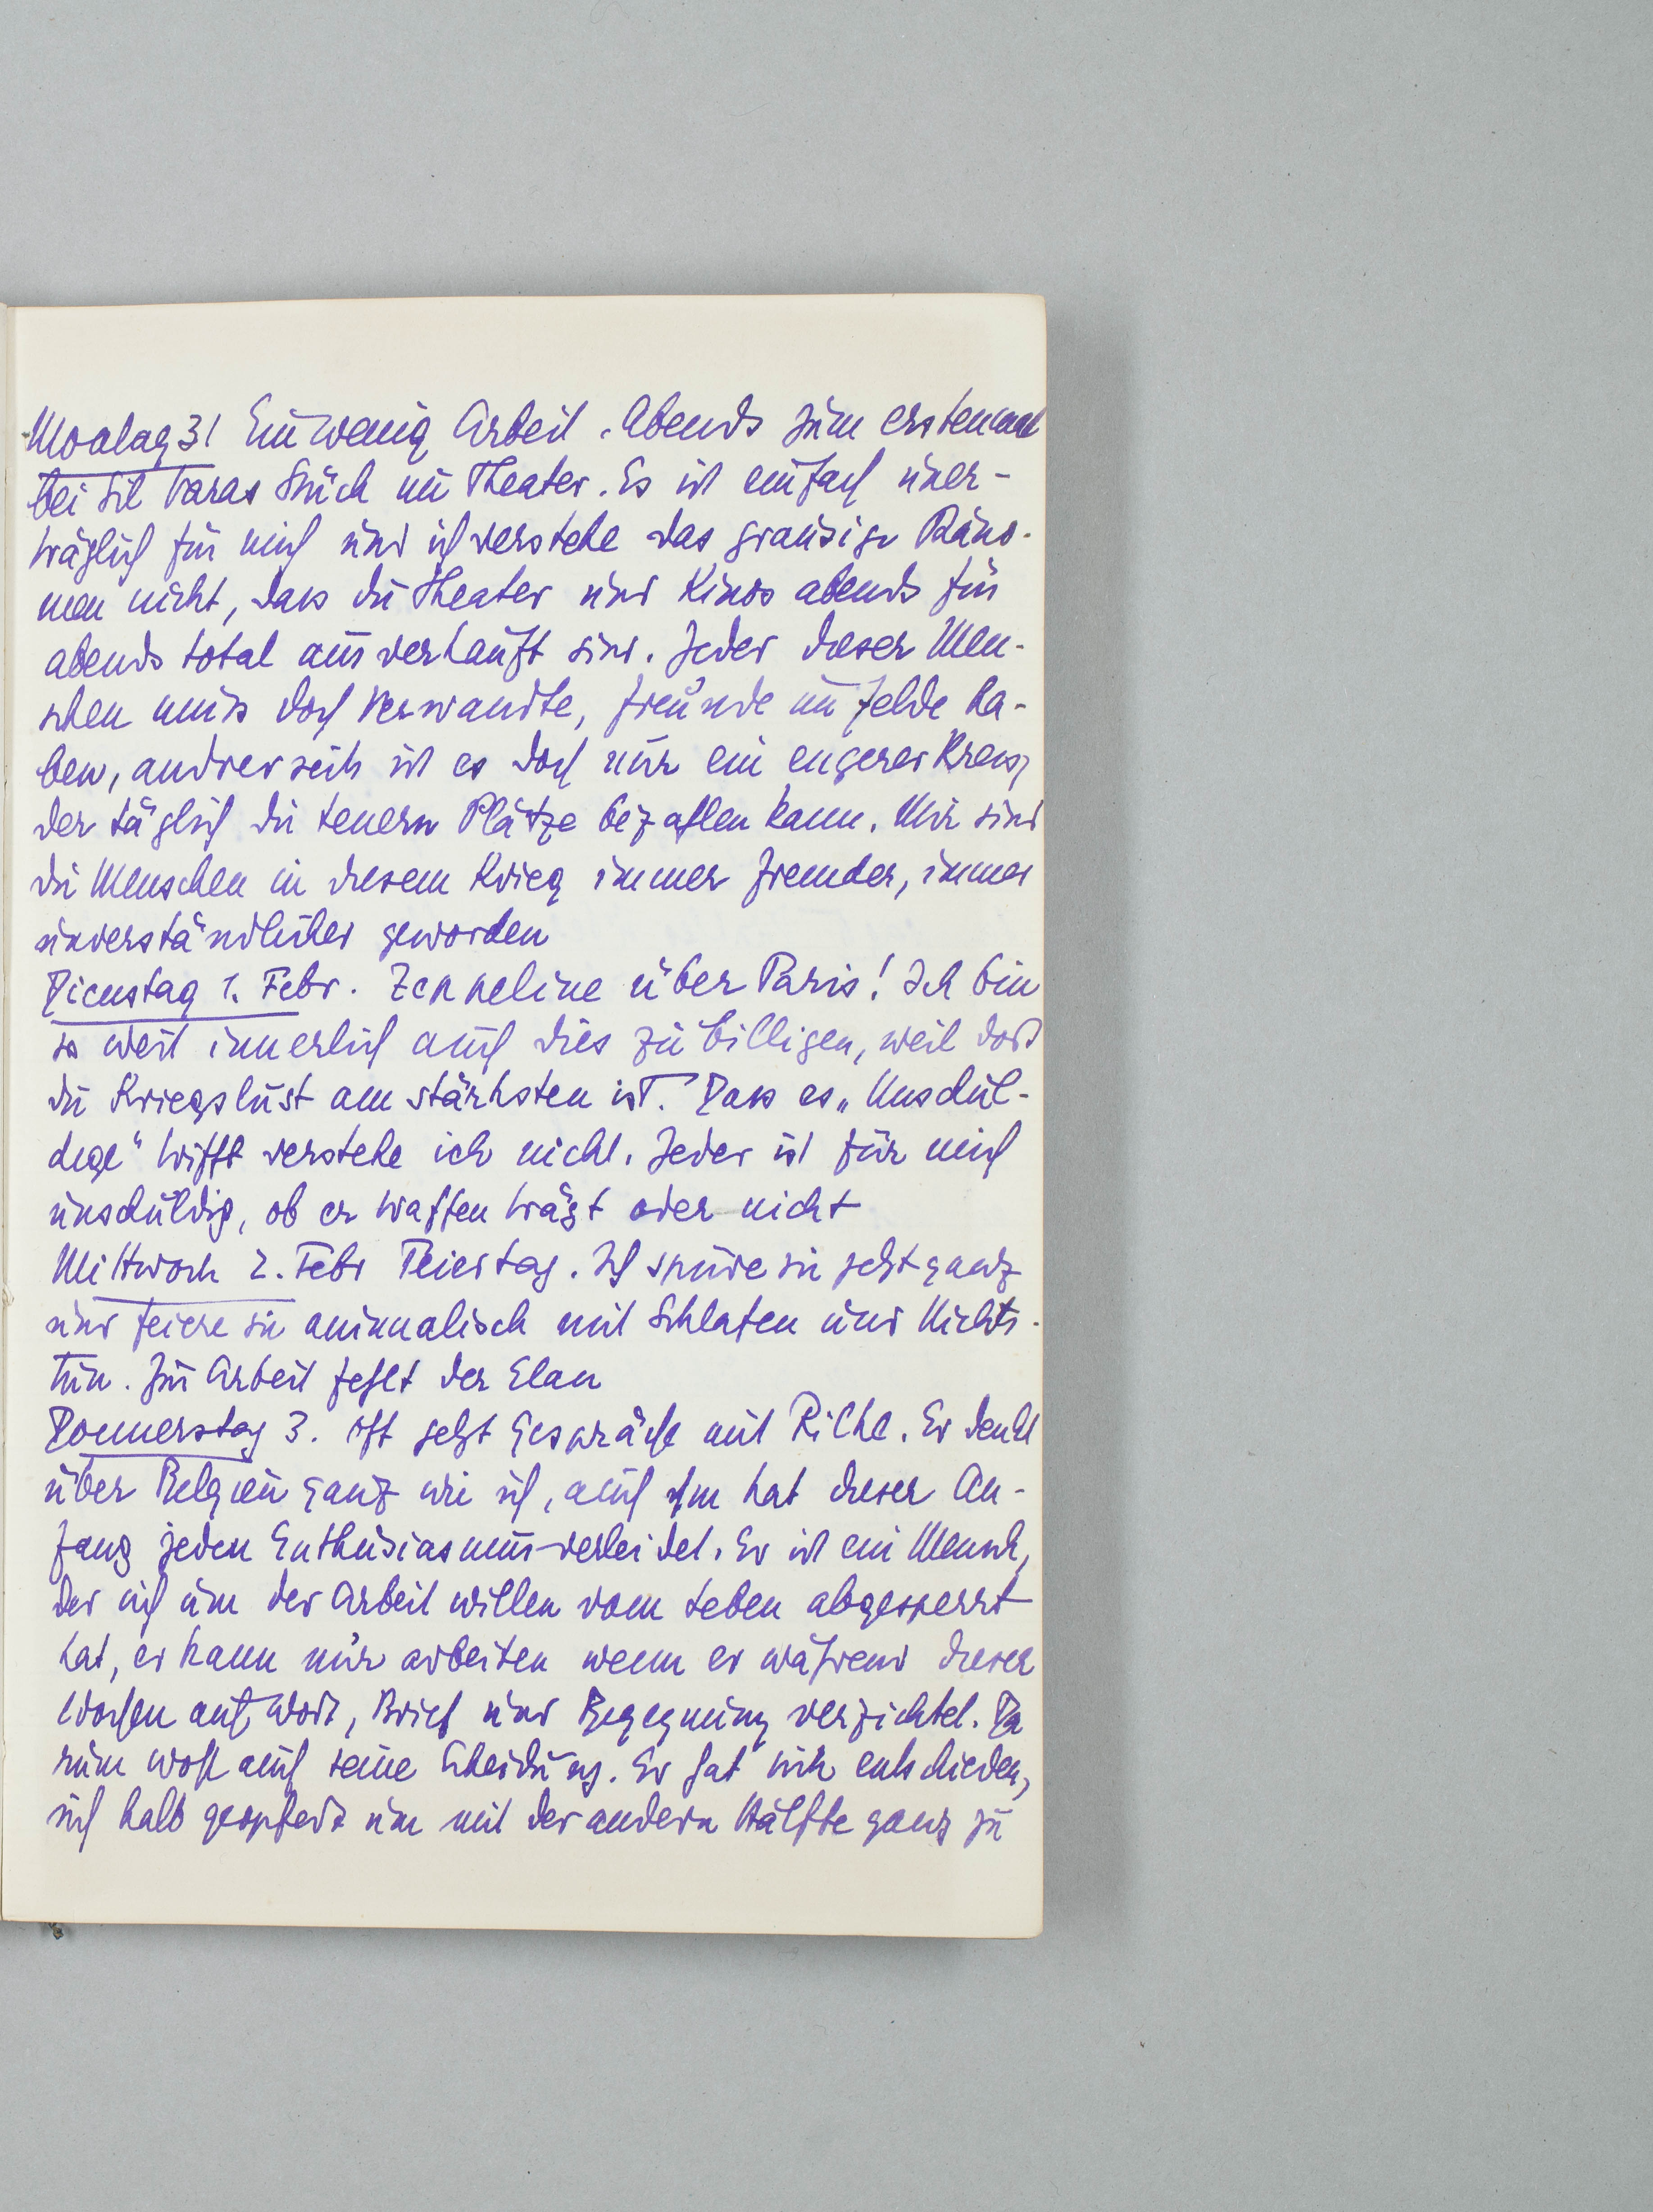 Montag 31 Ein wenig Arbeit. Abends zum erstenmal
bei Sil Varas Stück im Theater. Es ist einfach uner-
träglich für mich und ich verstehe das grausige Phäno-
men nicht, dass die Theater und Kinos abends für
abends total ausverkauft sind. Jeder dieser Men-
schen muss doch Verwandte, Freunde im Felde ha-
ben, andrerseits ist es doch nur ein engerer Kreis,
der täglich die teuern Plätze bezahlen kann. Mir sind
die Menschen in diesem Krieg immer fremder, immer
unverständlicher geworden
Dienstag 1. Febr. Zeppeline über Paris! Ich bin
so weit innerlich auch dies zu billigen, weil dort
die Kriegslust am stärksten ist. Dass es „Unschul-
dige“ trifft verstehe ich nicht. Jeder ist für mich
unschuldig, ob er Waffen trägt oder nicht
Mittwoch 2. Febr Feiertag. Ich spüre sie jetzt ganz
und feiere sie animalisch mit Schlafen und Nichts-
tun. Zur Arbeit fehlt der Elan
Donnerstag 3. Oft jetzt Gespräche mit Rilke. Er denkt
über Belgien ganz wie ich, auch ihm hat dieser An-
fang jeden Enthusiasmus verleidet. Er ist ein Mensch,
der sich um der Arbeit willen vom Leben abgesperrt
hat, er kann nur arbeiten wenn er während dieser
Wochen auf Wort, Brief und Begegnung verzichtet. Da
rum wohl auch seine Scheidung. Er hat sich entschieden,
sich halb geopfert um mit der andern Hälfte ganz zu